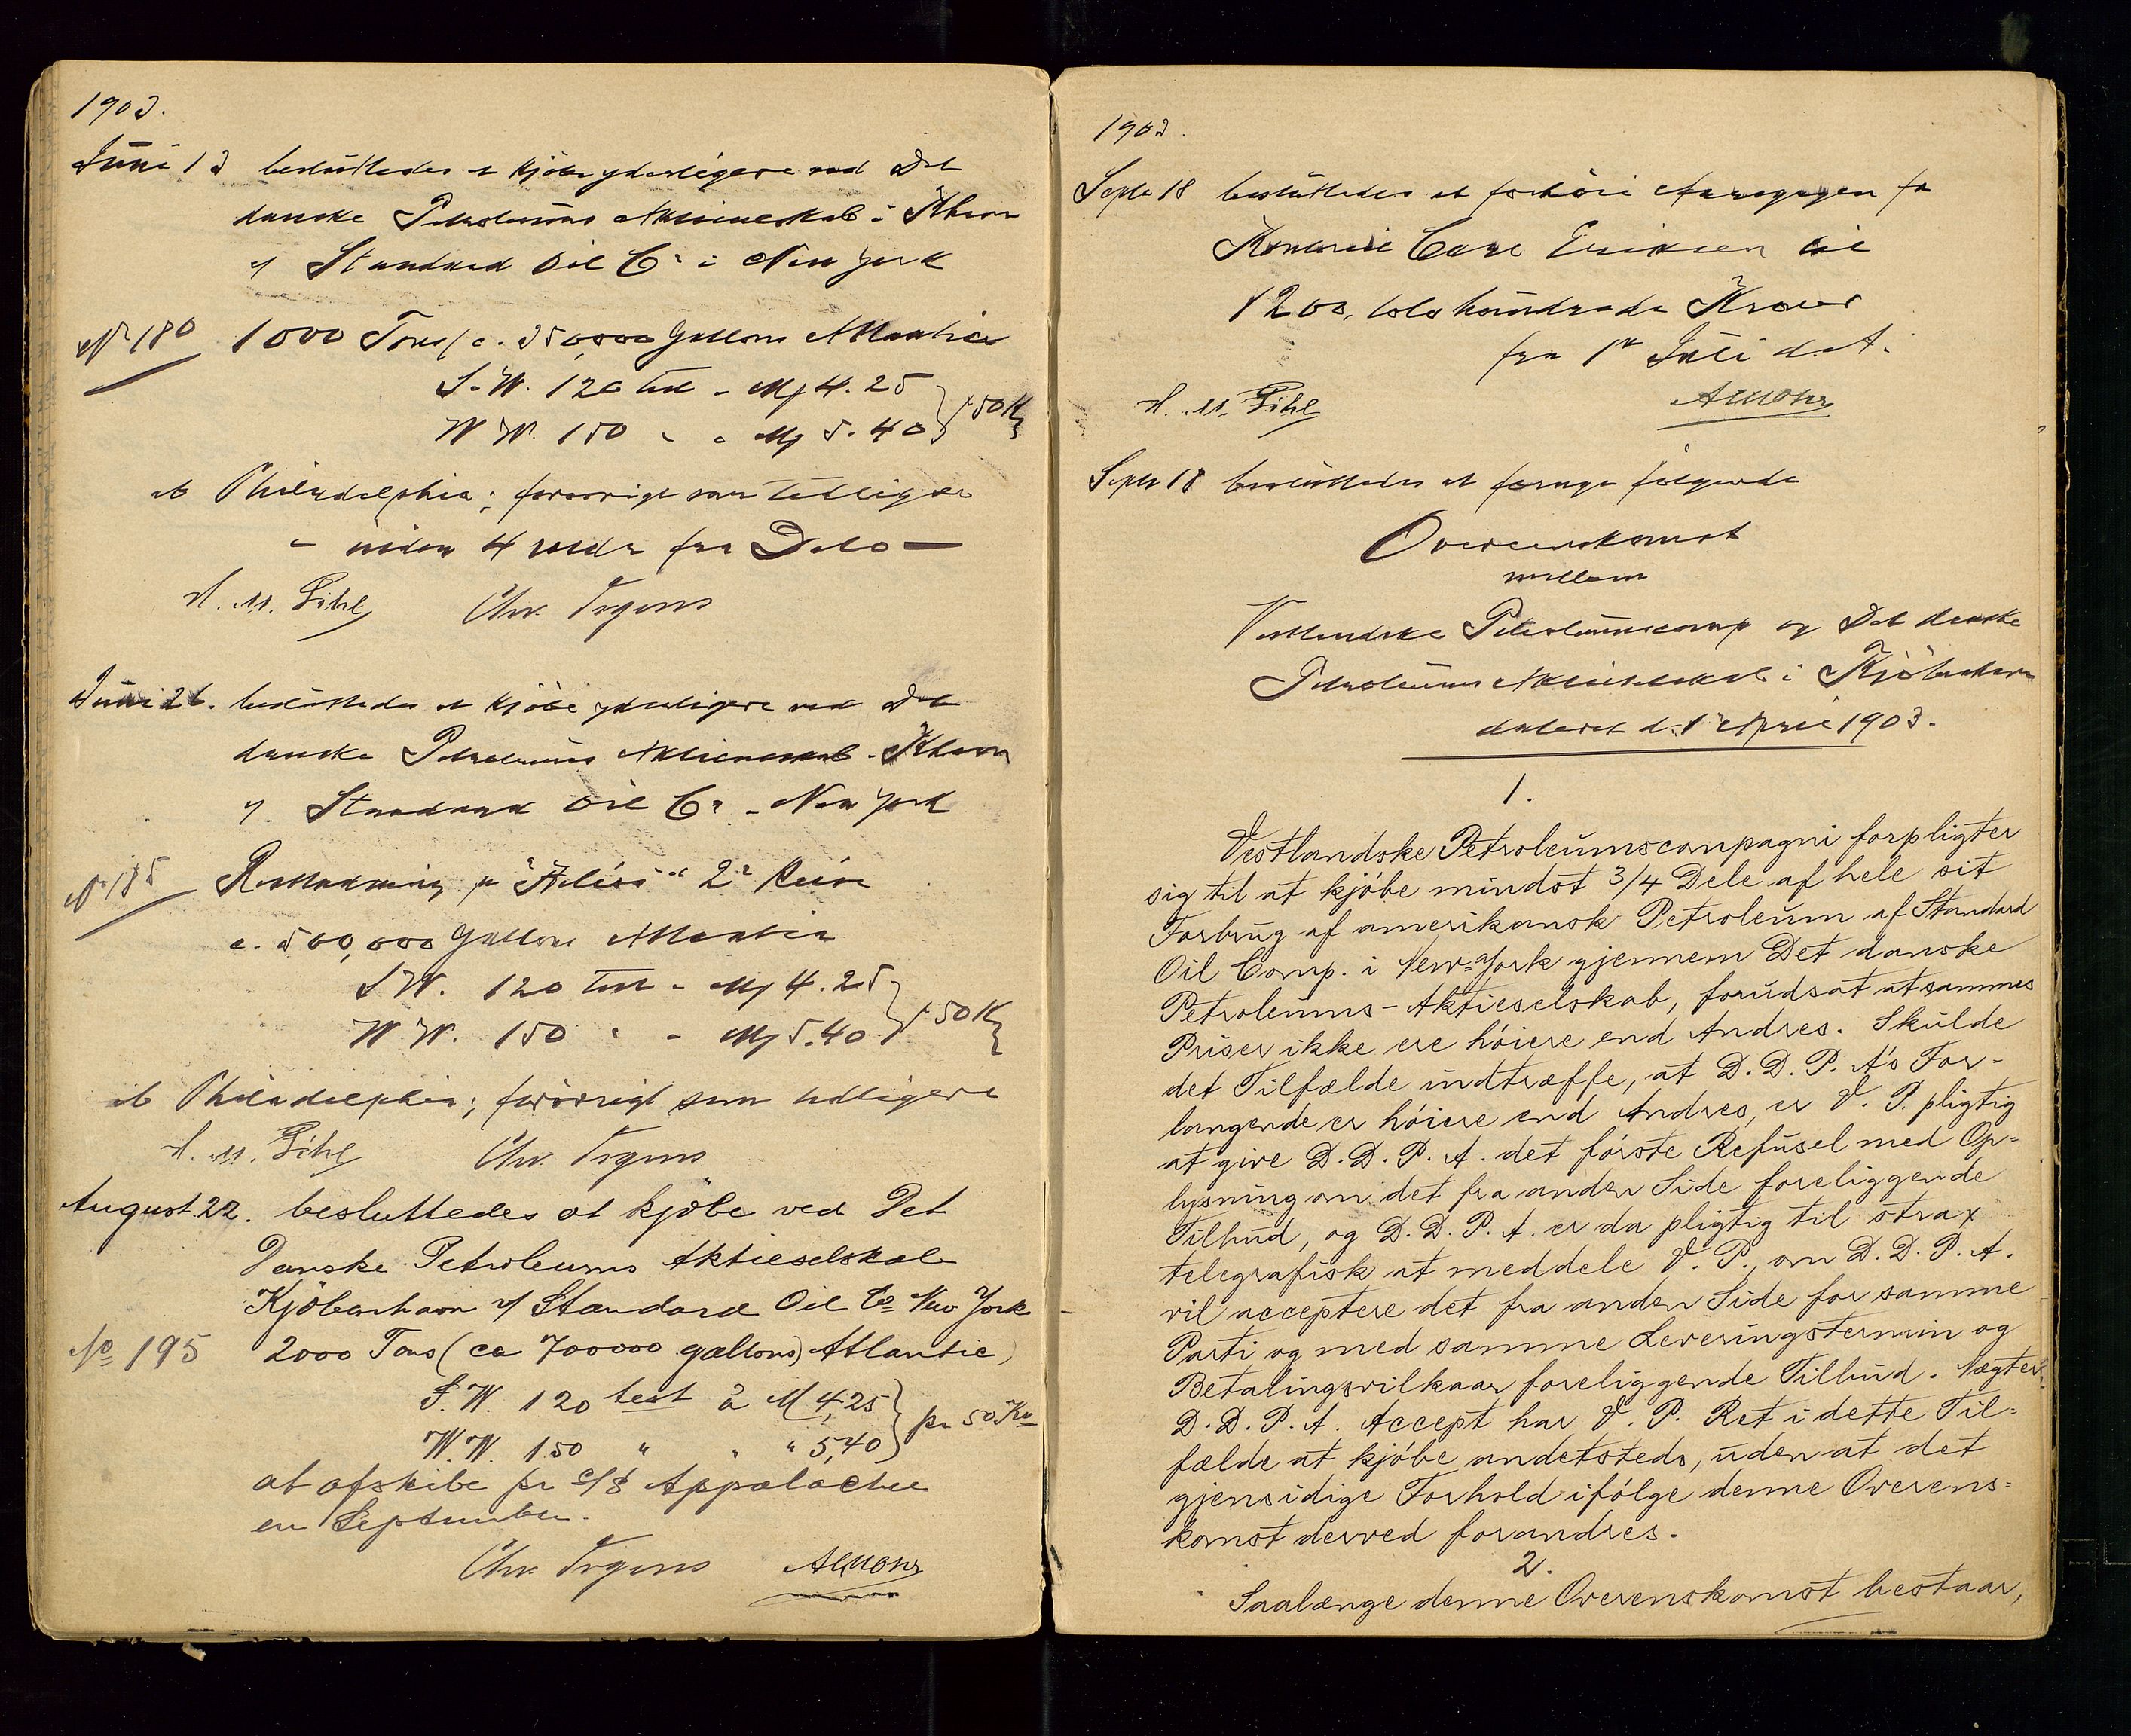 1903.
Juni 13 besluttedes at kjøbe yderligere ved Det
danske Petroleums Aktieselskab i Kbhavn
af Standard Oil Co i New York
No 180 1000 Tons (c. 350,000 Gallons Atlantic
S.W. 120 test - M 4.25
W.W. 150 " " M 5.40 } p 50 K
ab Philadelphia; forøvrigt som tidligere
- inden 4 Uger fra Dato -
H. M. Gihl Chr. Irgens
Juni 26. besluttedes at kjøbe yderligere ved Det
danske Petroleums Aktieselskab - Kbhavn
af Standard Oil Co - New York
No 185 Restladning pr "Helios" 2n Reise
c. 500,000 Gallons Atlantic
S.W. 120 test - M 4.25
W.W. 150 " - M 5.40 } p 50 K
ab Philadelphia; forøvrigt som tidligere
H. M. Gihl Chr. Irgens
August 22. besluttedes at kjöbe ved Det
Danske Petroleums Aktieselskab
Kjöbenhavn af Standard Oil Co New York
No 195 2000 Tons (ca 700000 gallons) Atlantic,
S.W. 120 test à M 4,25
W.W. 150 " " " 5,40 } pr 50 Ko
at afskibe pr s/s Appalachee
en September.
Chr. Irgens AMohr
1903.
Septr 18 besluttedes at forhøie Gagen for
Carl Eriksen til
1200, tolv hundrede Kroner
fra 1r Juli d.A.
H. M. Gihl AMohr
Septr 18 besluttedes at forny følgende
Overenskomst
mellem
Vestlandske Petroleumscomp og Det danske
Petroleums Aktieselskab i Kjøbenhavn
dateret d. 1 April 1903.
1.
Vestlandske Petroleumscompagni forpligter
sig til at kjóbe mindst 3/4 Dele af hele sit
Forbrug af amerikansk Petroleum af Standard
Oil Comp. i New=York gjennem Det danske
Petroleums-Aktieselskab, forudsat at sammes
Priser ikke ere hóiere end Andres. Skulde
det Tilfælde indtræffe, at D. D. P. A's For-
langende er hóiere end Andres, er V. P. pligtig
at give D. D. P. A. det fórste Refusel med Op=
lysning om det fra anden Side foreliggende
Tilbud, og D. D. P. A. er da pligtig til strax
telegrafisk at meddele V. P., om D. D. P. A.
vil acceptere det fra anden Side for samme
Parti og med samme Leveringstermin og
Betalingsvilkaar foreliggende Tilbud. Nægter
D. D. P. A. Accept har V. P. Ret i dette Til=
fælde at kjóbe andetsteds, uden at det
gjensidige Forhold ifólge denne Overens=
komst derved forandres.
2.
Saalænge denne Overenskomst bestaar,